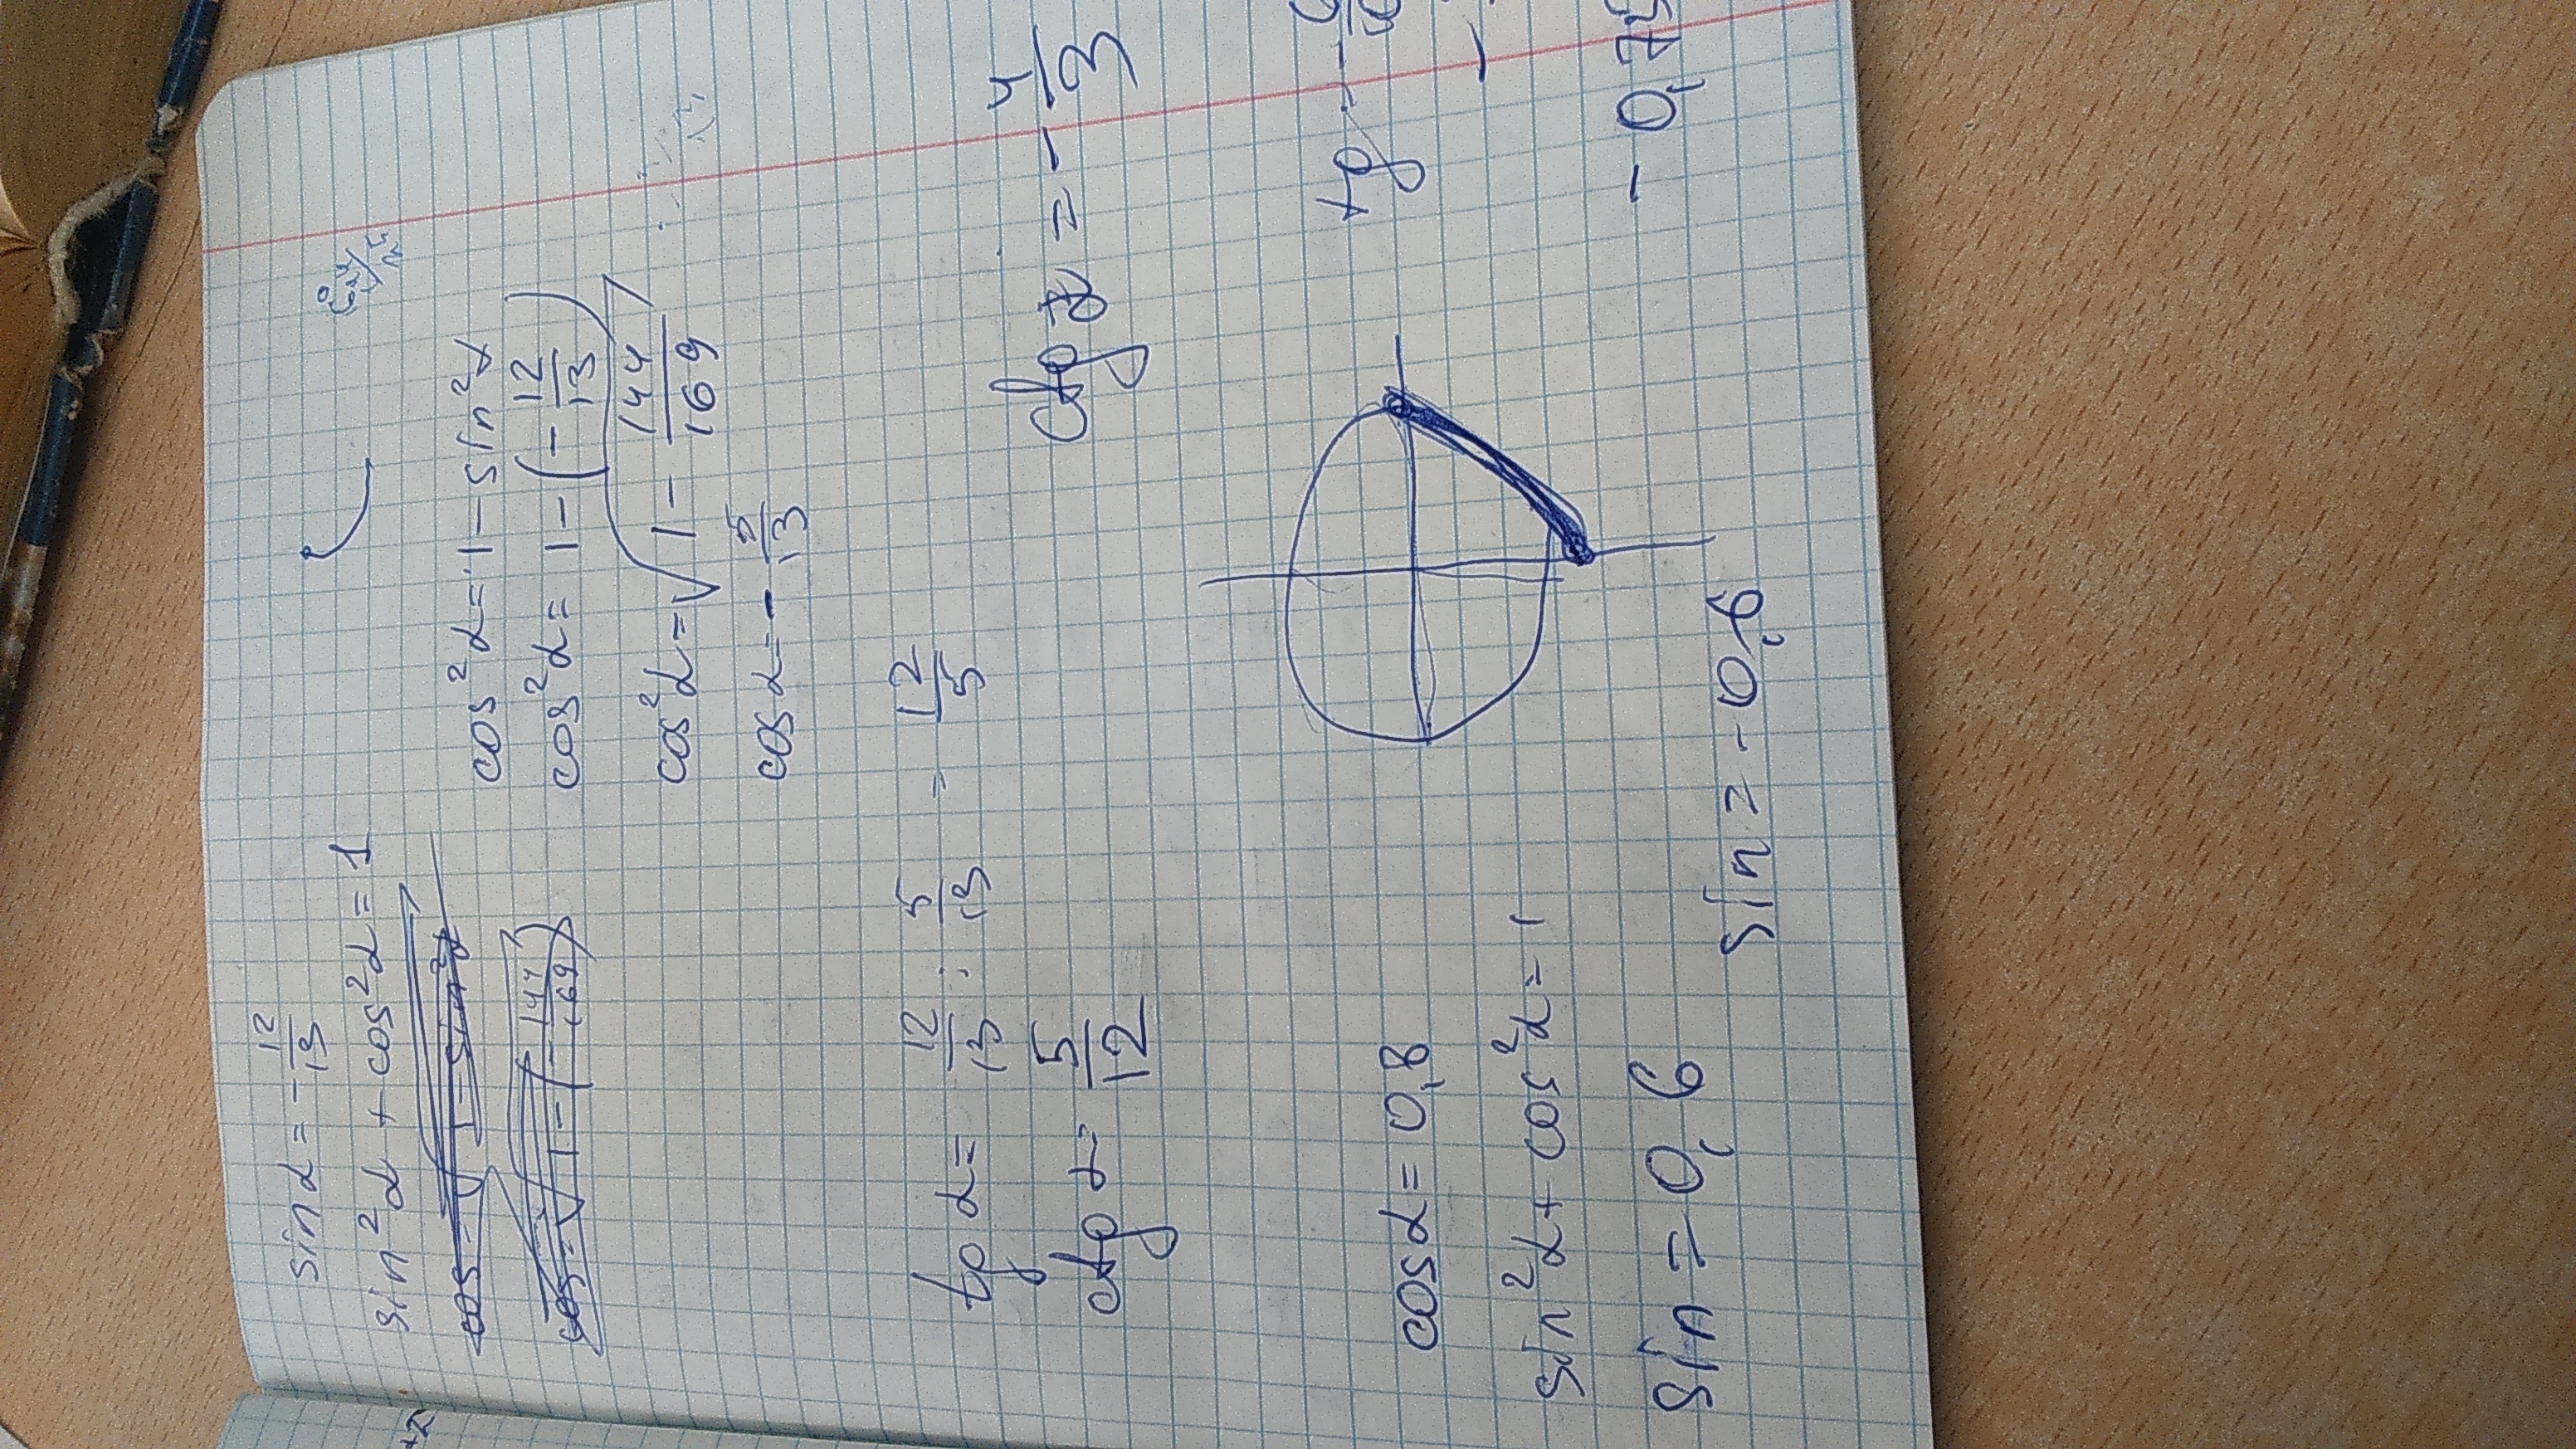 sin α = - 12/13
sin²α + cos²α = 1
cos²α = 1 - sin²α
cos²α = 1 - (- 12/13)
cos²α = √(1 - 144/169)
cos α = - 5/13
tg α = 12/13 : 5/13 = 12/5
ctg α = 5/12
ctg α = - 4/3
cos α = 0,8
sin²α + cos²α = 1
sin = 0,6
sin = - 0,6
tg = -
- 0,75